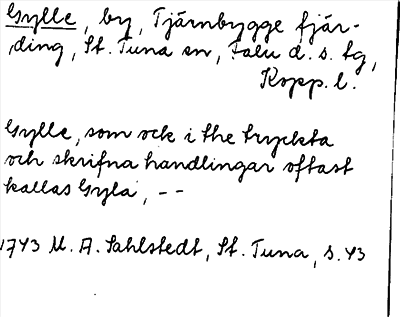 Gylle, by, Tjärnbygge fjär-
ding, St. Tuna sn, Falu d. s. tg,
Kopp. l.
Gylle, som ock i the tryckta
och skrifna handlingar oftast
kallas Gyla, --
1743 M. A. Sahlstedt, St. Tuna, s. 43